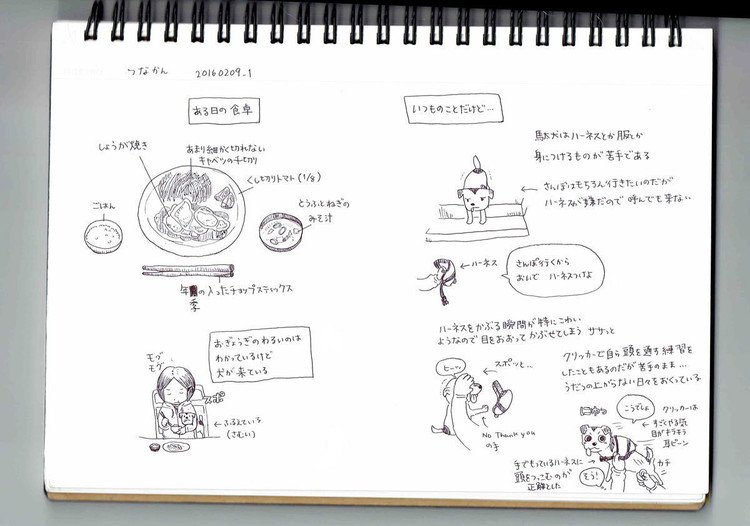 つなかん 20160209_1
ある日の食卓
しょうが焼き
あまり細かく切れない
キャベツの千切り
くし切りトマト(1/8)
ごはん
とうふとねぎの
みそ汁
年季の入ったチョップスティックス
おぎょうぎのわるいのは
わかっているけど
犬が来ている
モグ
モグ
ズボ
←ふるえている
(さむい)
いつものことだけど…
駄犬はハーネスとか服とか
身につけるものが苦手である
さんぽはもちろん行きたいのだが
ハーネスが嫌なので 呼んでも来ない
←ハーネス
さんぽ行くから
おいで ハーネスつけよ
ハーネスをかぶる瞬間が特にこわい
ようなので目をおおってかぶせてしまう ササっと
ヒーッ
スポッと…
No Thank you
の手
クリッカーで自ら頭を通す練習を
したこともあるのだが苦手のまま…
うだつの上がらない日々をおくっている
にゅっ
こうでしょ
クリッカーは
すごくやる気
目がキラキラ
耳ピーン
カチ
そう!
手でもっているハーネスに
頭をつっこむのが
正解とした